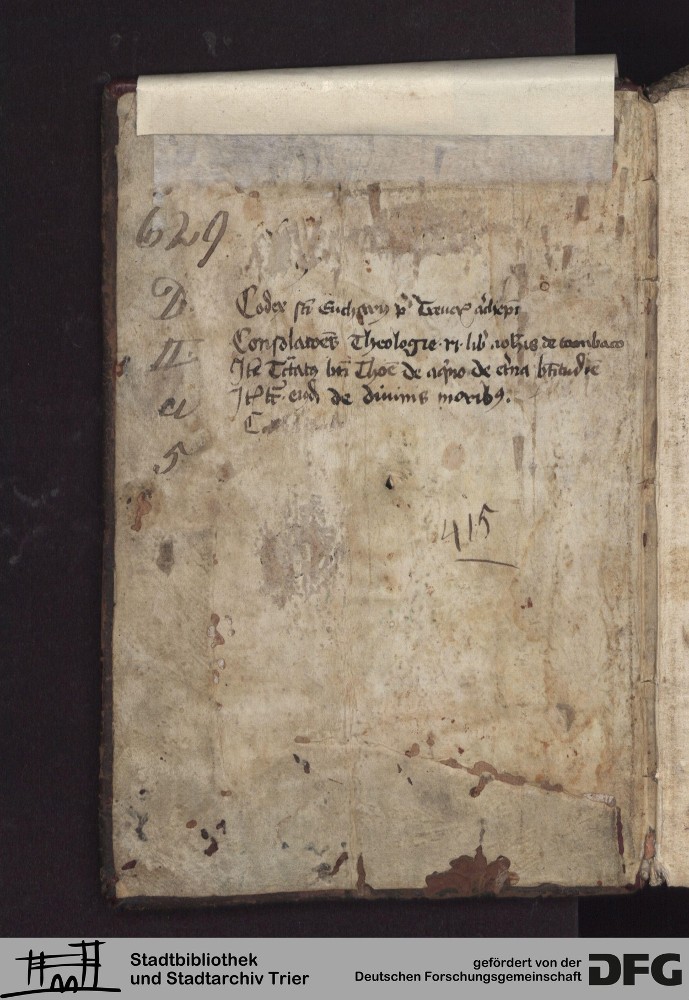 629
D.
II.
a
5
Codex sti Eucharij pi Treuer archiepi
Consolatoes Theologie xi lib Johis de tambaco
Ite Tctatg bti Thoe de aqno de etna btitudie
Ite tc eiusd de diuinis moribg.
415
Stadtbibliothek
und Stadtarchiv Trier
gefördert von der
Deutschen Forschungsgemeinschaft
DFG